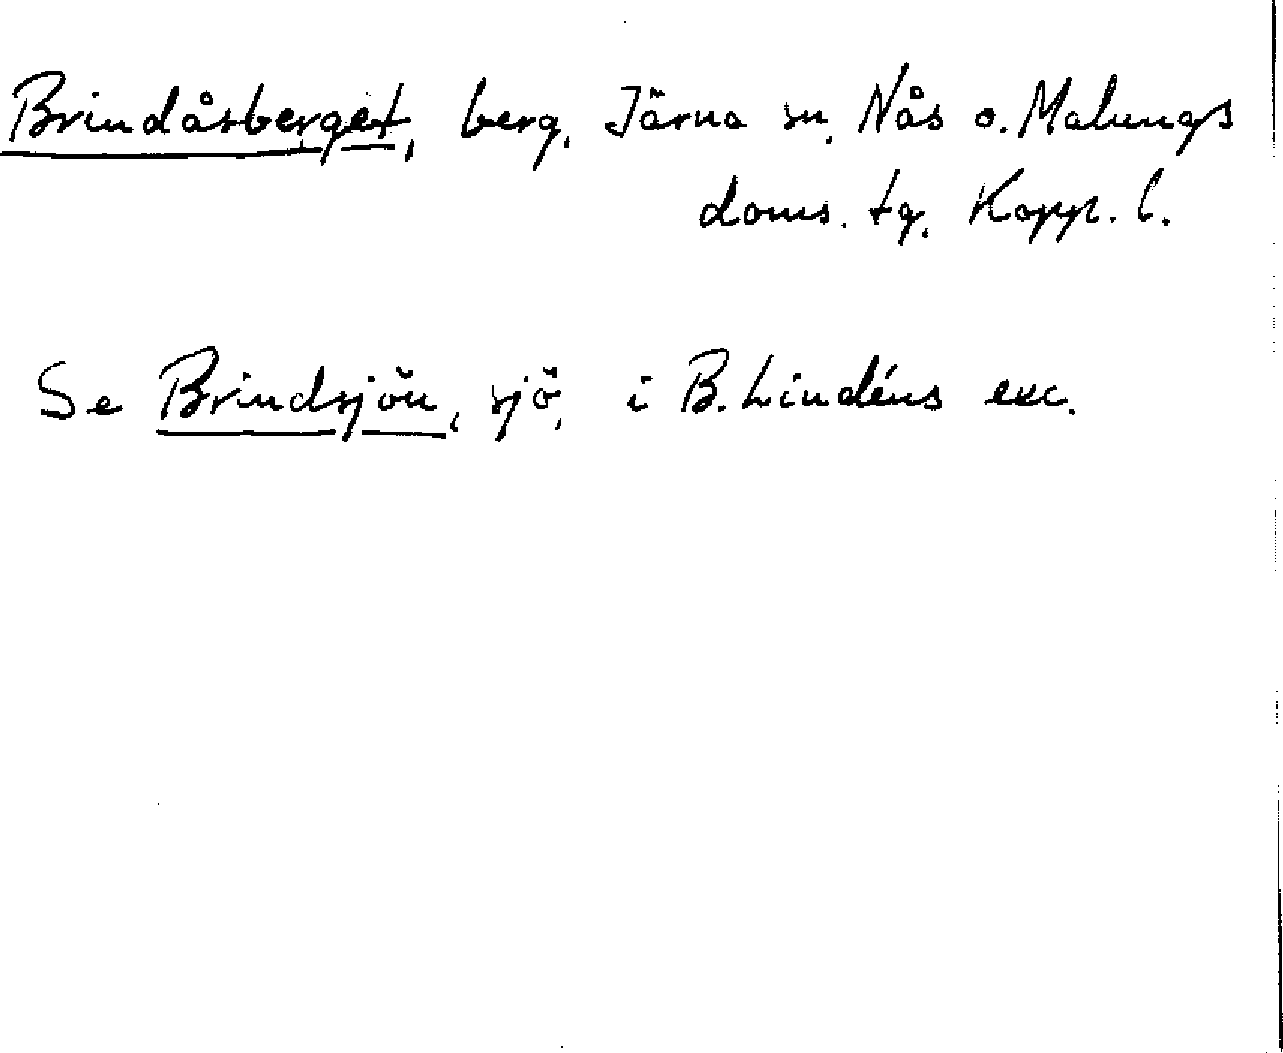 Brindåsberget, berg, Järna sn, Nås o. Malungs
doms. tg. Kopp. l.
Se Brindsjön, sjö, i B. Lindéns exc.